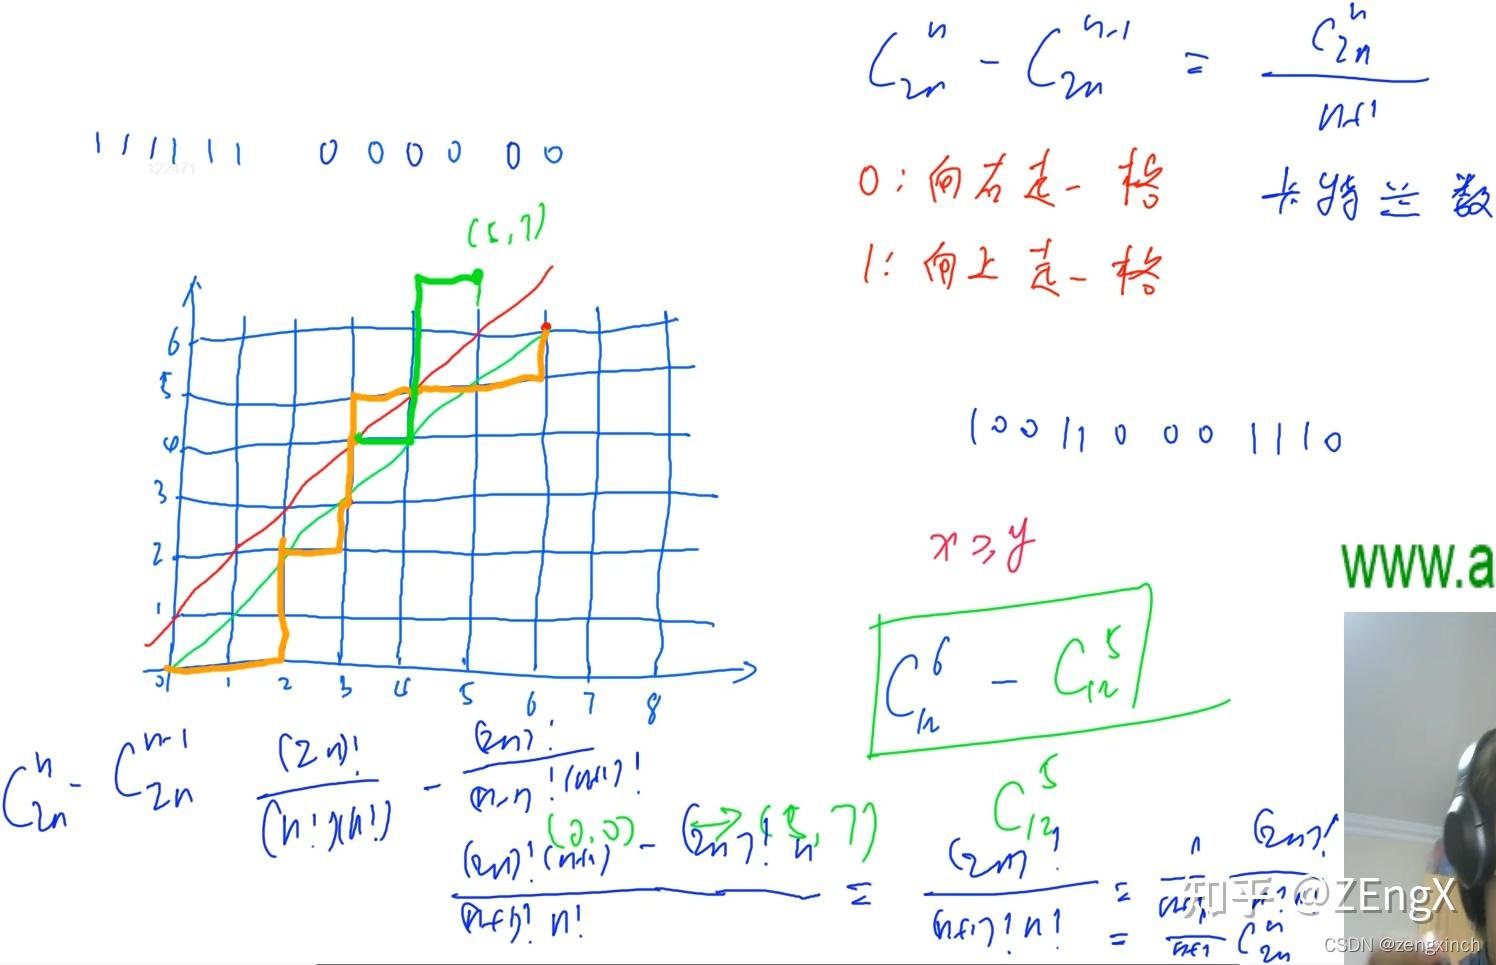 C_{2n}^{n} - C_{2n}^{n-1} = \frac{C_{2n}^{n}}{n+1}
1 1 1 1 1 1 0 0 0 0 0 0
122471
0：向右走一格
卡特兰数
1：向上走一格
(5,7)
6
5
4
3
2
1
0 1 2 3 4 5 6 7 8
1 0 0 1 1 0 0 0 1 1 1 0
x ≥ y
www.a
C_{12}^{6} - C_{12}^{5}
C_{2n}^{n} - C_{2n}^{n-1} \frac{(2n)!}{(n!)(n!)} - \frac{(2n)!}{(n-1)!(n+1)!}
C_{12}^{5}
(0,0) ↔ (5,7)
\frac{(2n)!(n+1) - (2n)! n}{(n+1)! n!} = \frac{(2n)!}{(n+1)! n!} = \frac{1}{n+1} \frac{(2n)!}{n! n!}
= \frac{1}{n+1} C_{2n}^{n}
知乎 @ZEngX
CSDN @zengxinch